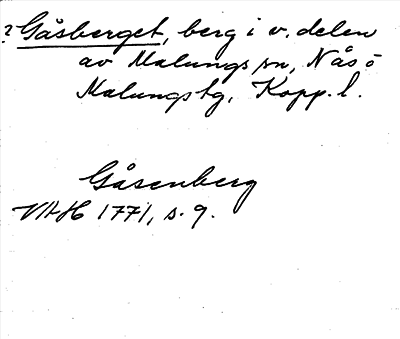 ? Gåsberget, berg i v. delen
av Malungs sn, Nås o
Malungs tg, Kopp. l.
Gåsenberg
VAH 1771, s. 9.